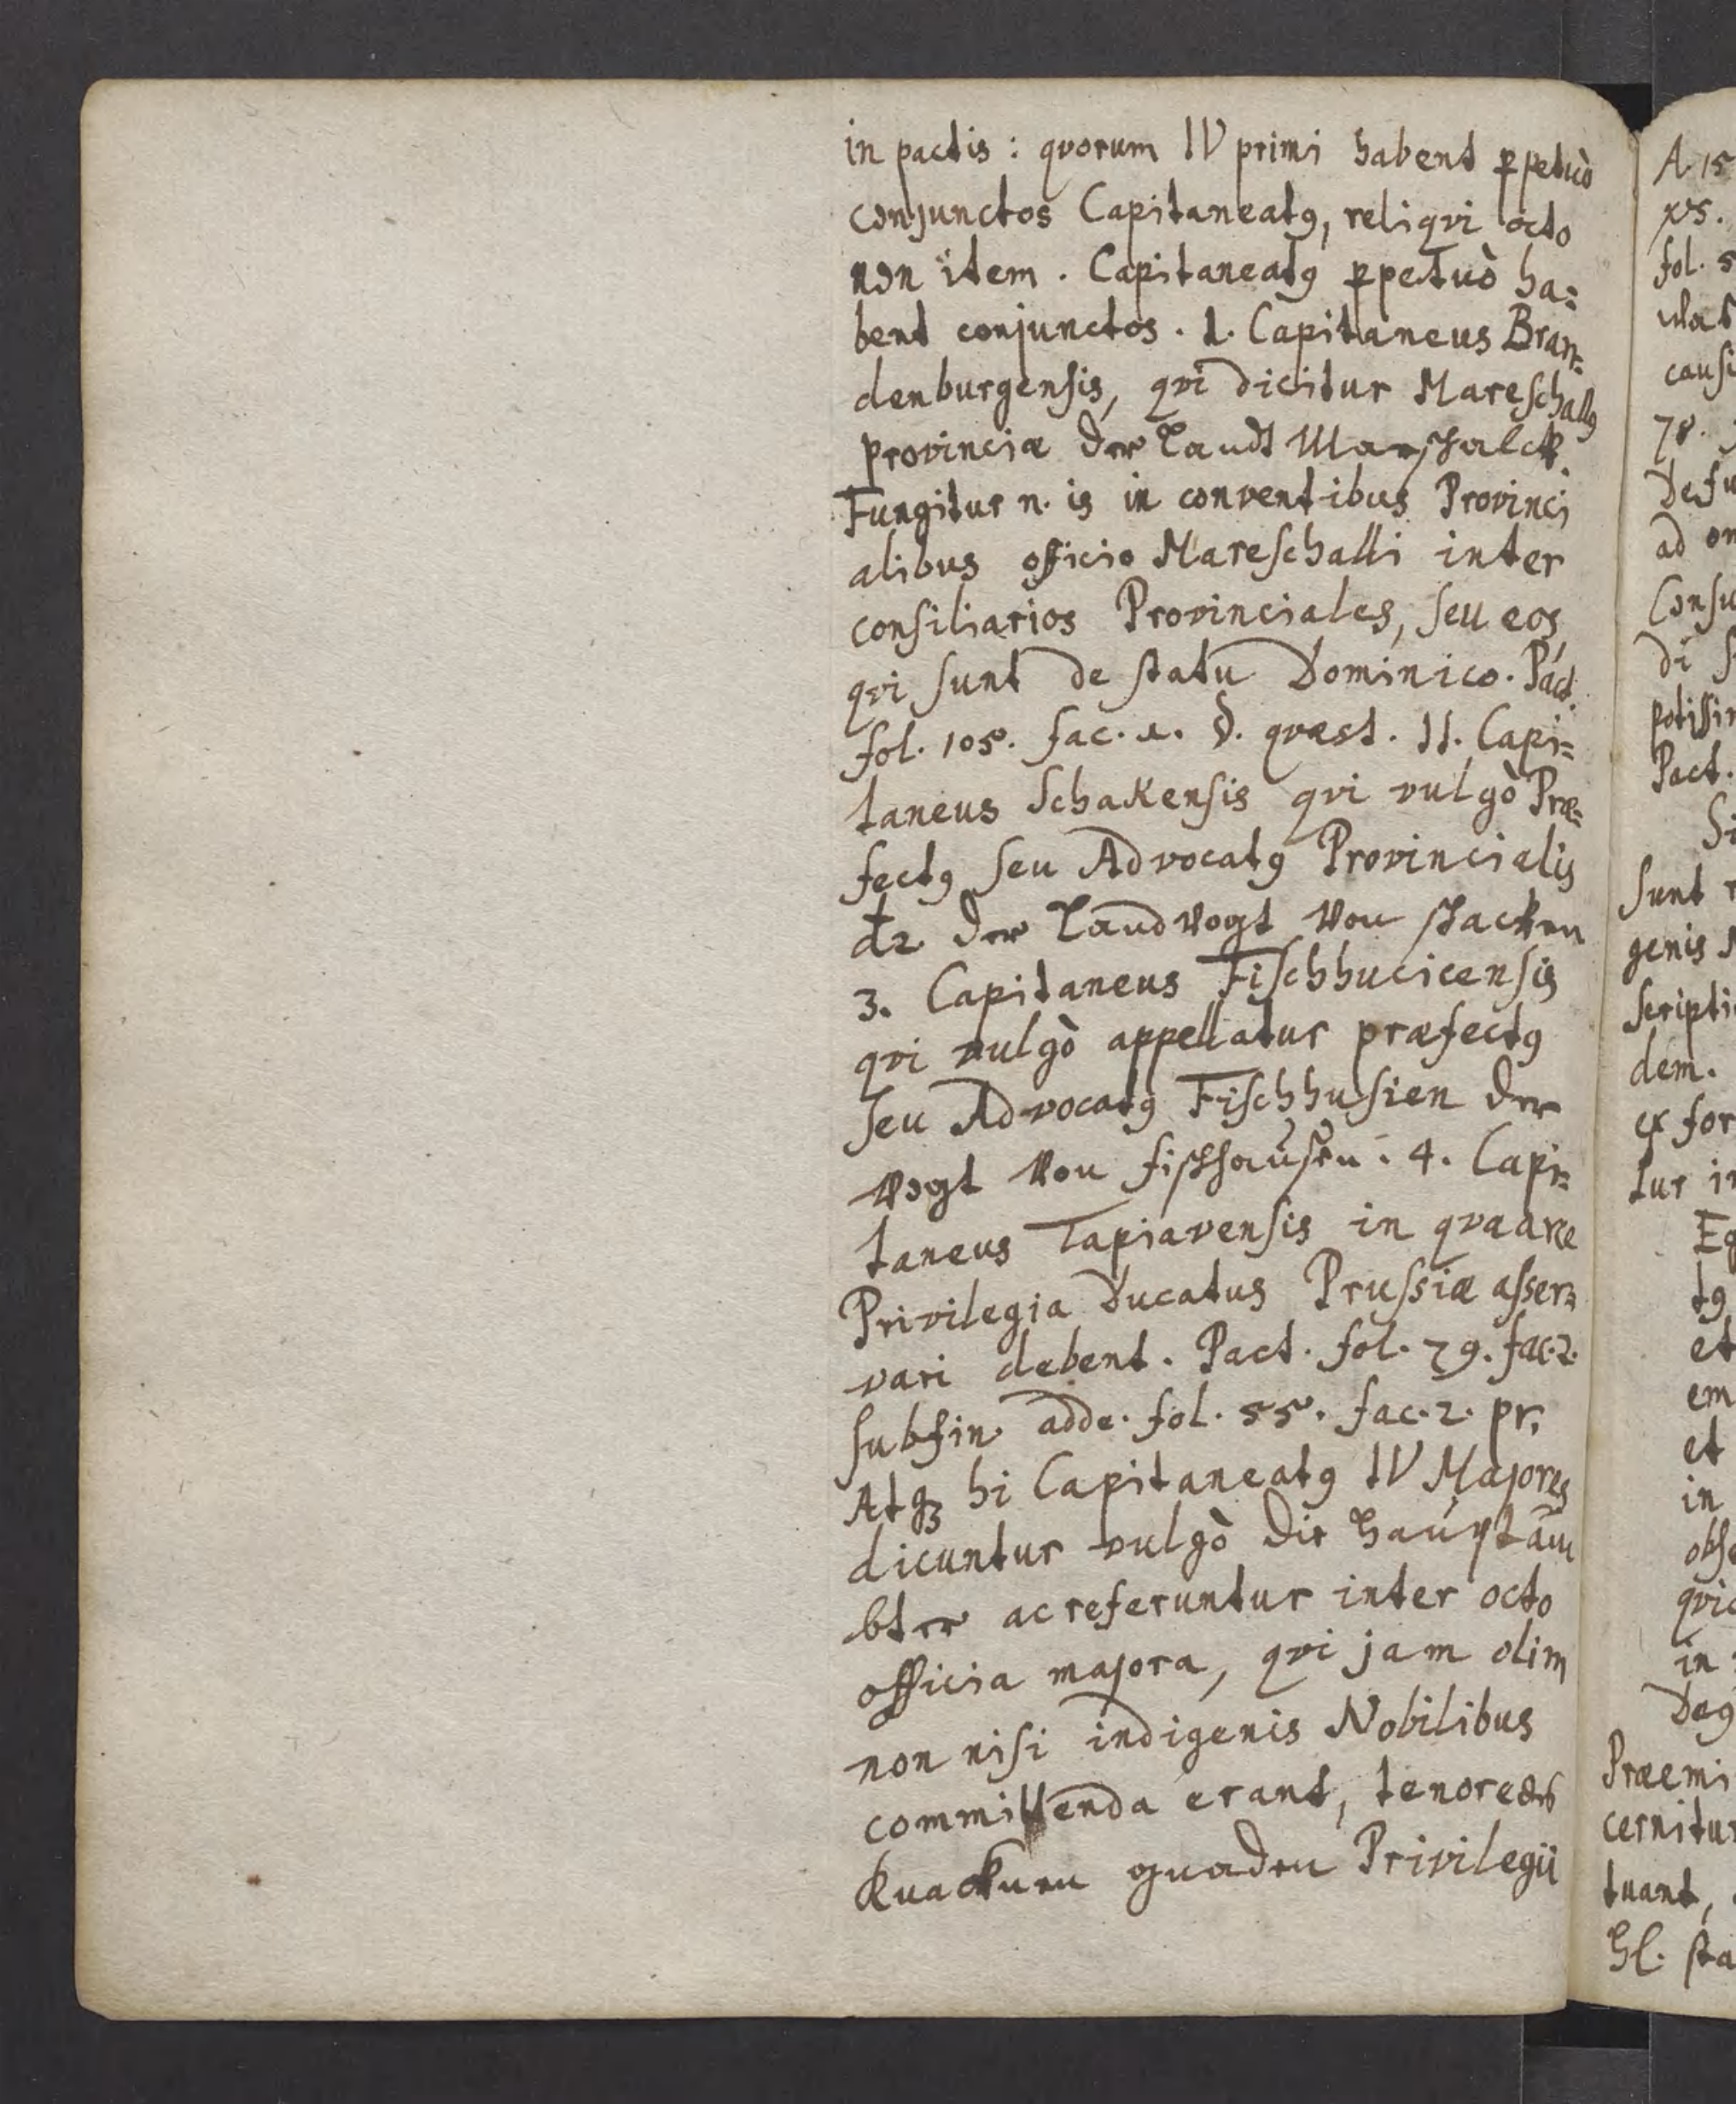 in pactis: qvorum IV primi habent ꝑpetuò
conjunctos Capitaneatꝰ, reliqvi octo
non item. Capitaneatꝰ ꝑpetuò ha=
bent conjunctos. 1. Capitaneus Bran=
denburgensis, qvi dicitur Mareschallꝰ
provinciæ der Landt Marschalck.
Fungitur n. is in conventibus Provinci
alibus officio Mareschalli inter
consiliarios Provinciales, seu eos
qvi sunt de statu Dominico. Pact.
fol. 105. fac. 1. §. qvæst. II. Capi=
taneus Schakensis qvi vulgò Præ=
fectꝰ seu Advocatꝰ Provincialis
der Landvogt von schacken
3. Capitaneus Fischhucicensis
qvi vulgò appellatur præfectꝰ
seu Advocatꝰ Fischhusien der
vogt von fischhausen. 4. Capi=
taneus Tapiavensis in qva arce
Privilegia Ducatus Prussiæ asser=
vari debent. Pact. fol. 79. fac. 2.
sub fin. adde. fol. 55. fac. 2. pr.
Atqꝫ hi Capitaneatꝰ IV Majores
dicuntur vulgò die Hauptäm
bter ac referuntur inter octo
officia majora, qvi jam olim
non nisi indigenis Nobilibus
committenda erant, tenore
gnaden Privilegii
A 15
fol. 5
causi
78.
Defu
ad
Consu
di
potissi
Pact.
Si
sunt
genis
scripti
dem.
for
tur
tꝰ
et
em
et
in
obse
qvi
in
Præemi
cernitur
tuant,